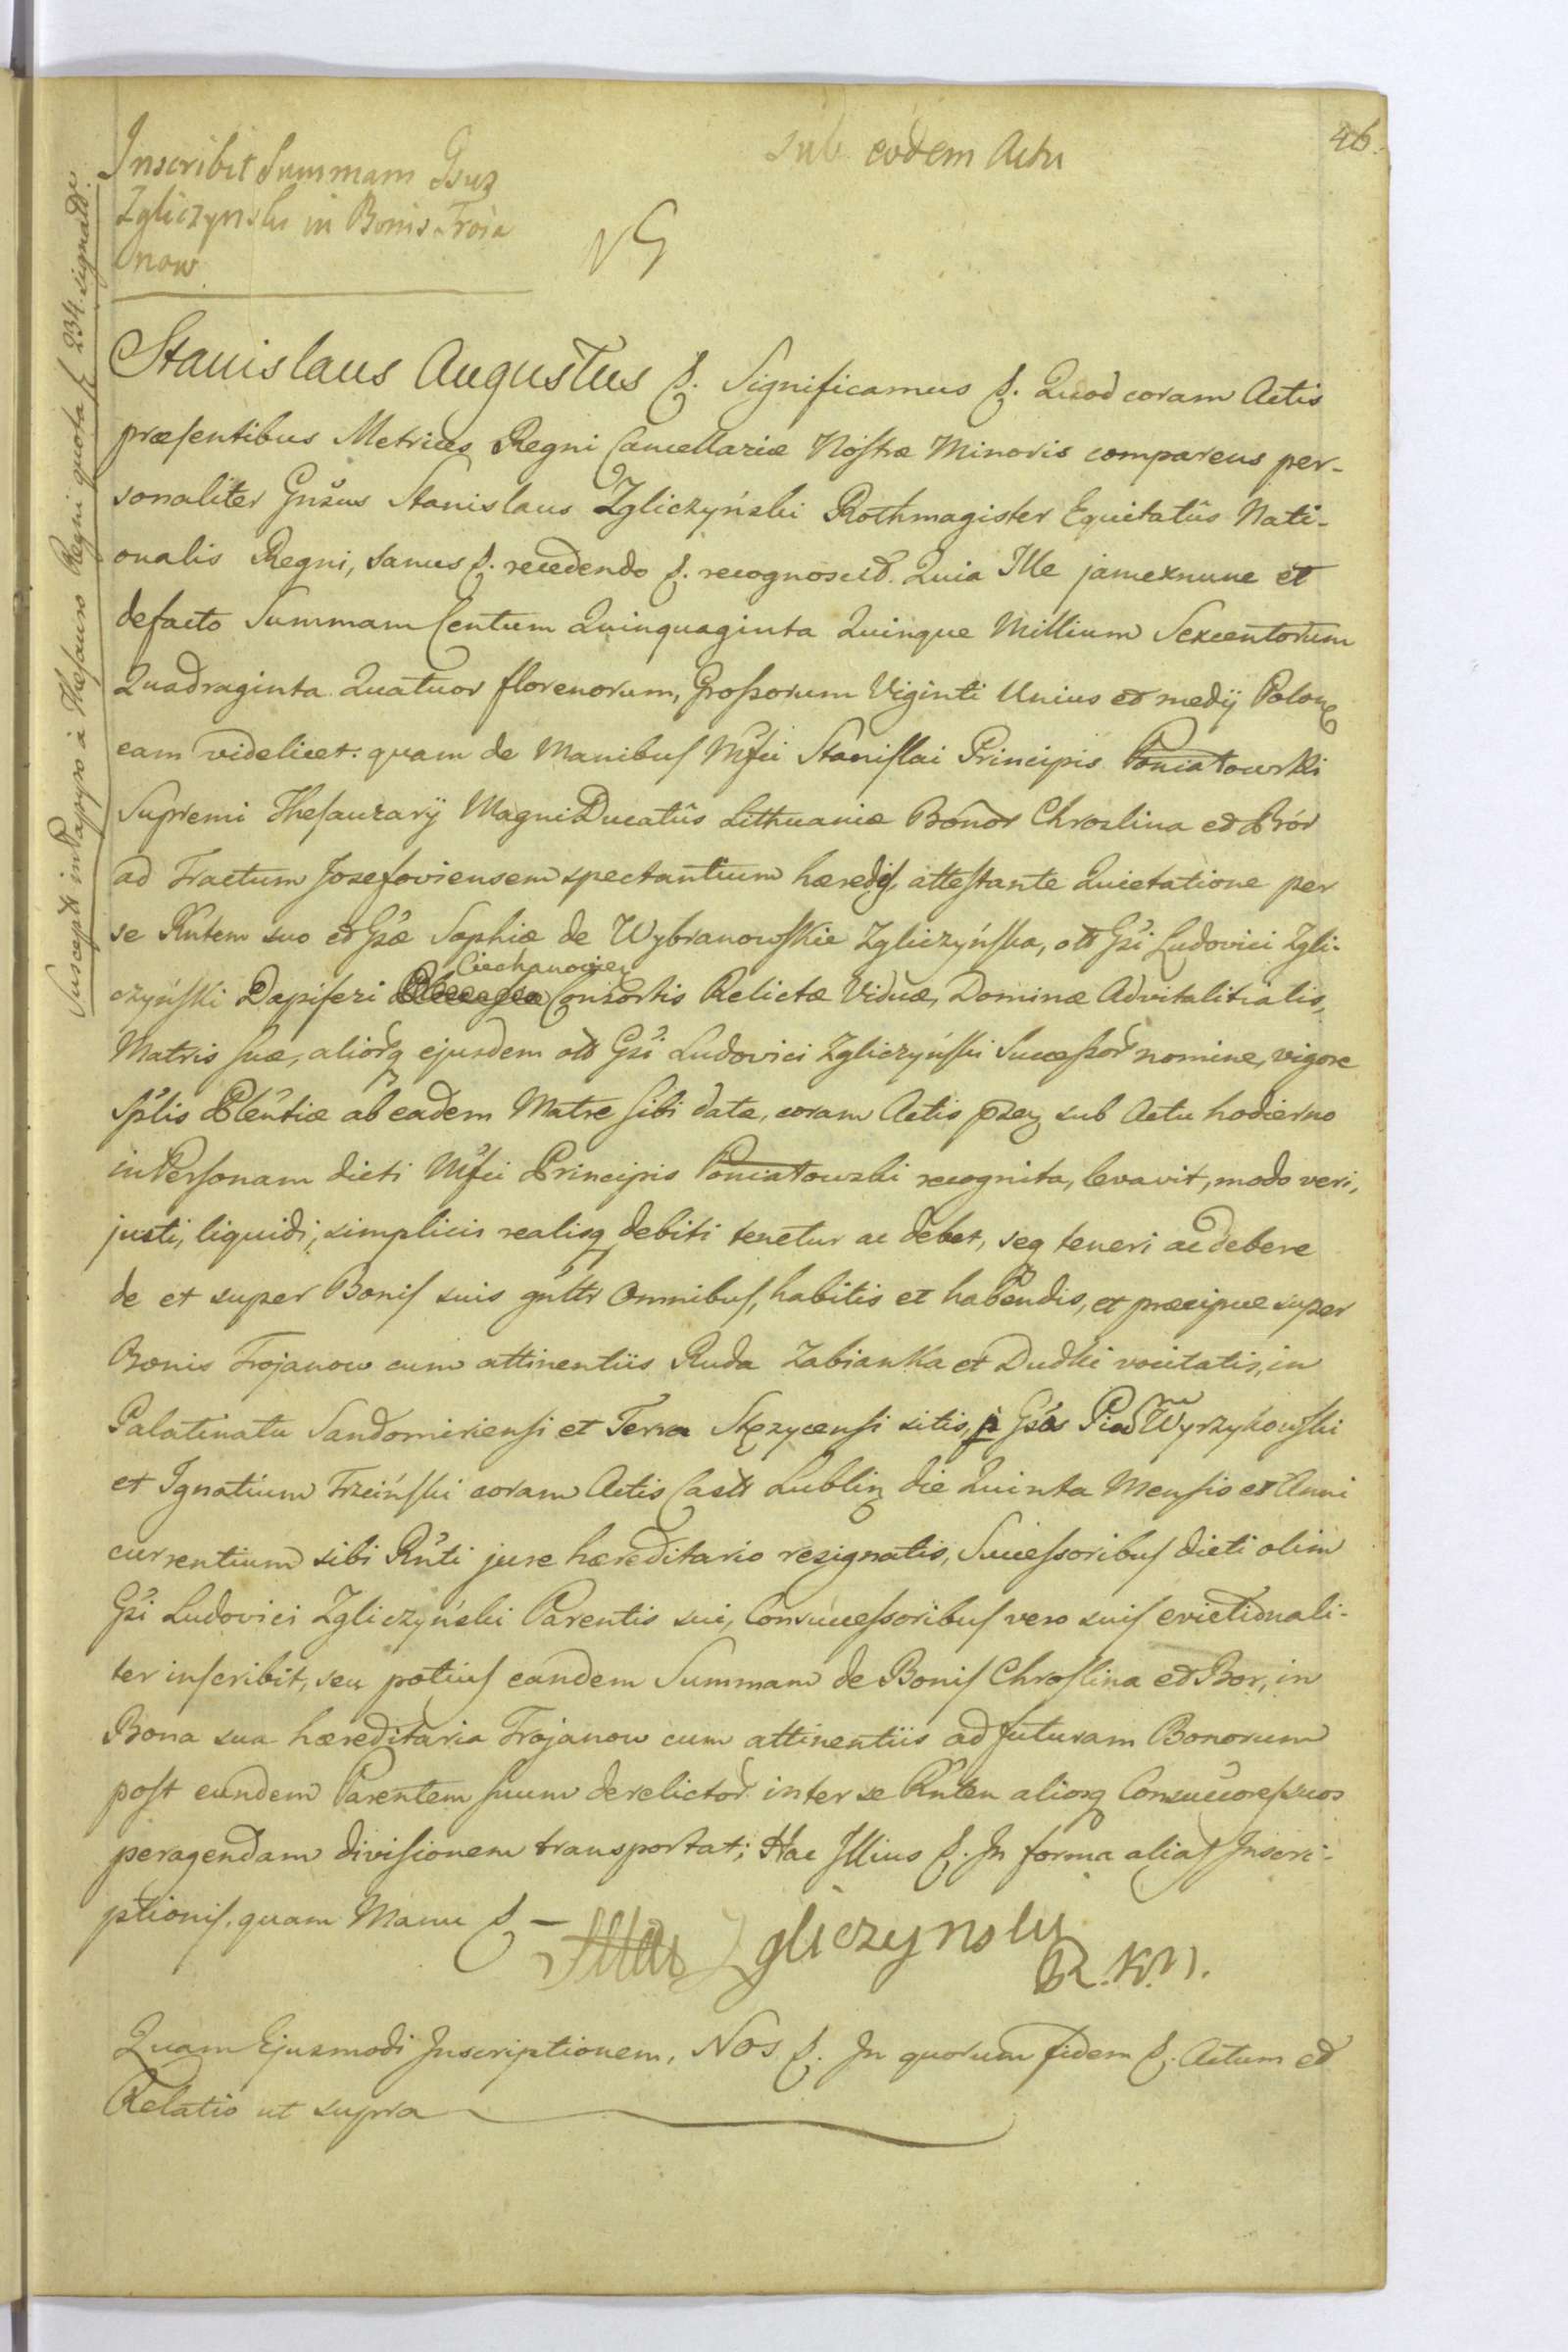 46.
sub eodem Actu
Inscribit Summam Gsus
Zgliczynski in Bonis Troia
now
Suscepta in Papyro à Thesauro Regni quota f 234. signatae.
Stanislaus Augustus &. Significamus &. Quod coram Actis
præsentibus Metrices Regni Cancellariæ Nostræ Minoris comparens per-
sonaliter Gnsus Stanislaus Zgliczyński Rothmagister Equitatûs Nati-
onalis Regni, sanus &. recedendo &. recognovit. Quia Ille jamexnunc et
defacto Summam Centum Quinquaginta Quinque Millium Sexcentorum
Quadraginta Quatuor florenorum, Grossorum Viginti Unius et medÿ Polon
eam videlicet: quam de Manibus Mfci Stanislai Principis Poniatowski
Supremi Thesaurarÿ Magni Ducatûs Lithuaniæ Bonor Chroslina et Bór
ad Tractum Josefoviensem spectantium hæredis, attestante Quietatione per
se Rntem suo et Gsæ Sophiæ de Wybranowskie Zgliczyńska, olt Gsi Ludovici Zgli-
czyński Dapiferi Ciechanovien Consortis Relictæ Viduæ, Dominæ Advitalitialis,
Matris suæ, aliorq ejusdem olt Gsi Ludovici Zgliczyński Successor nomine, vigore
splis Plentiæ ab eadem Matre sibi datæ, coram Actis præz sub Actu hodierno
in Personam dicti Mfci Principis Poniatowski recognita, levavit, modo veri,
justi, liquidi, simplicis realisq debiti tenetur ac debet, seq teneri ac debere
de et super Bonis suis gnltr Omnibus, habitis et habendis, et præcipue super
Bonis Trojanow cum attinentiis Ruda Zabianka et Dudki vocitatis, in
Palatinatu Sandomiriensi et Terra Stęzycensi sitis, p Gsos Pium Wyrzykowski
et Ignatium Trzciński coram Actis Castr Lublin die Quinta Mensis et Anni
currentium sibi Rnti jure hæreditario resignatis, Successoribus dicti olim
Gsi Ludovici Zgliczyński Parentis sui, Consuccessoribus vero suis evictionali-
ter inscribit, seu potius eandem Summam de Bonis Chroslina et Bor, in
Bona sua hæreditaria Trojanow cum attinentiis ad futuram Bonorum
post eundem Parentem suum derelictor inter se Rnten aliosq Consuccores suos
peragendam divisionem transportat; Hac Illius &. In forma alias Inscri-
ptionis, quam Manu & –
Zgliczynski
R.K.N.
Quam Ejusmodi Inscriptionem, Nos &. In quorum fidem &. Actum et
Relatio ut supra